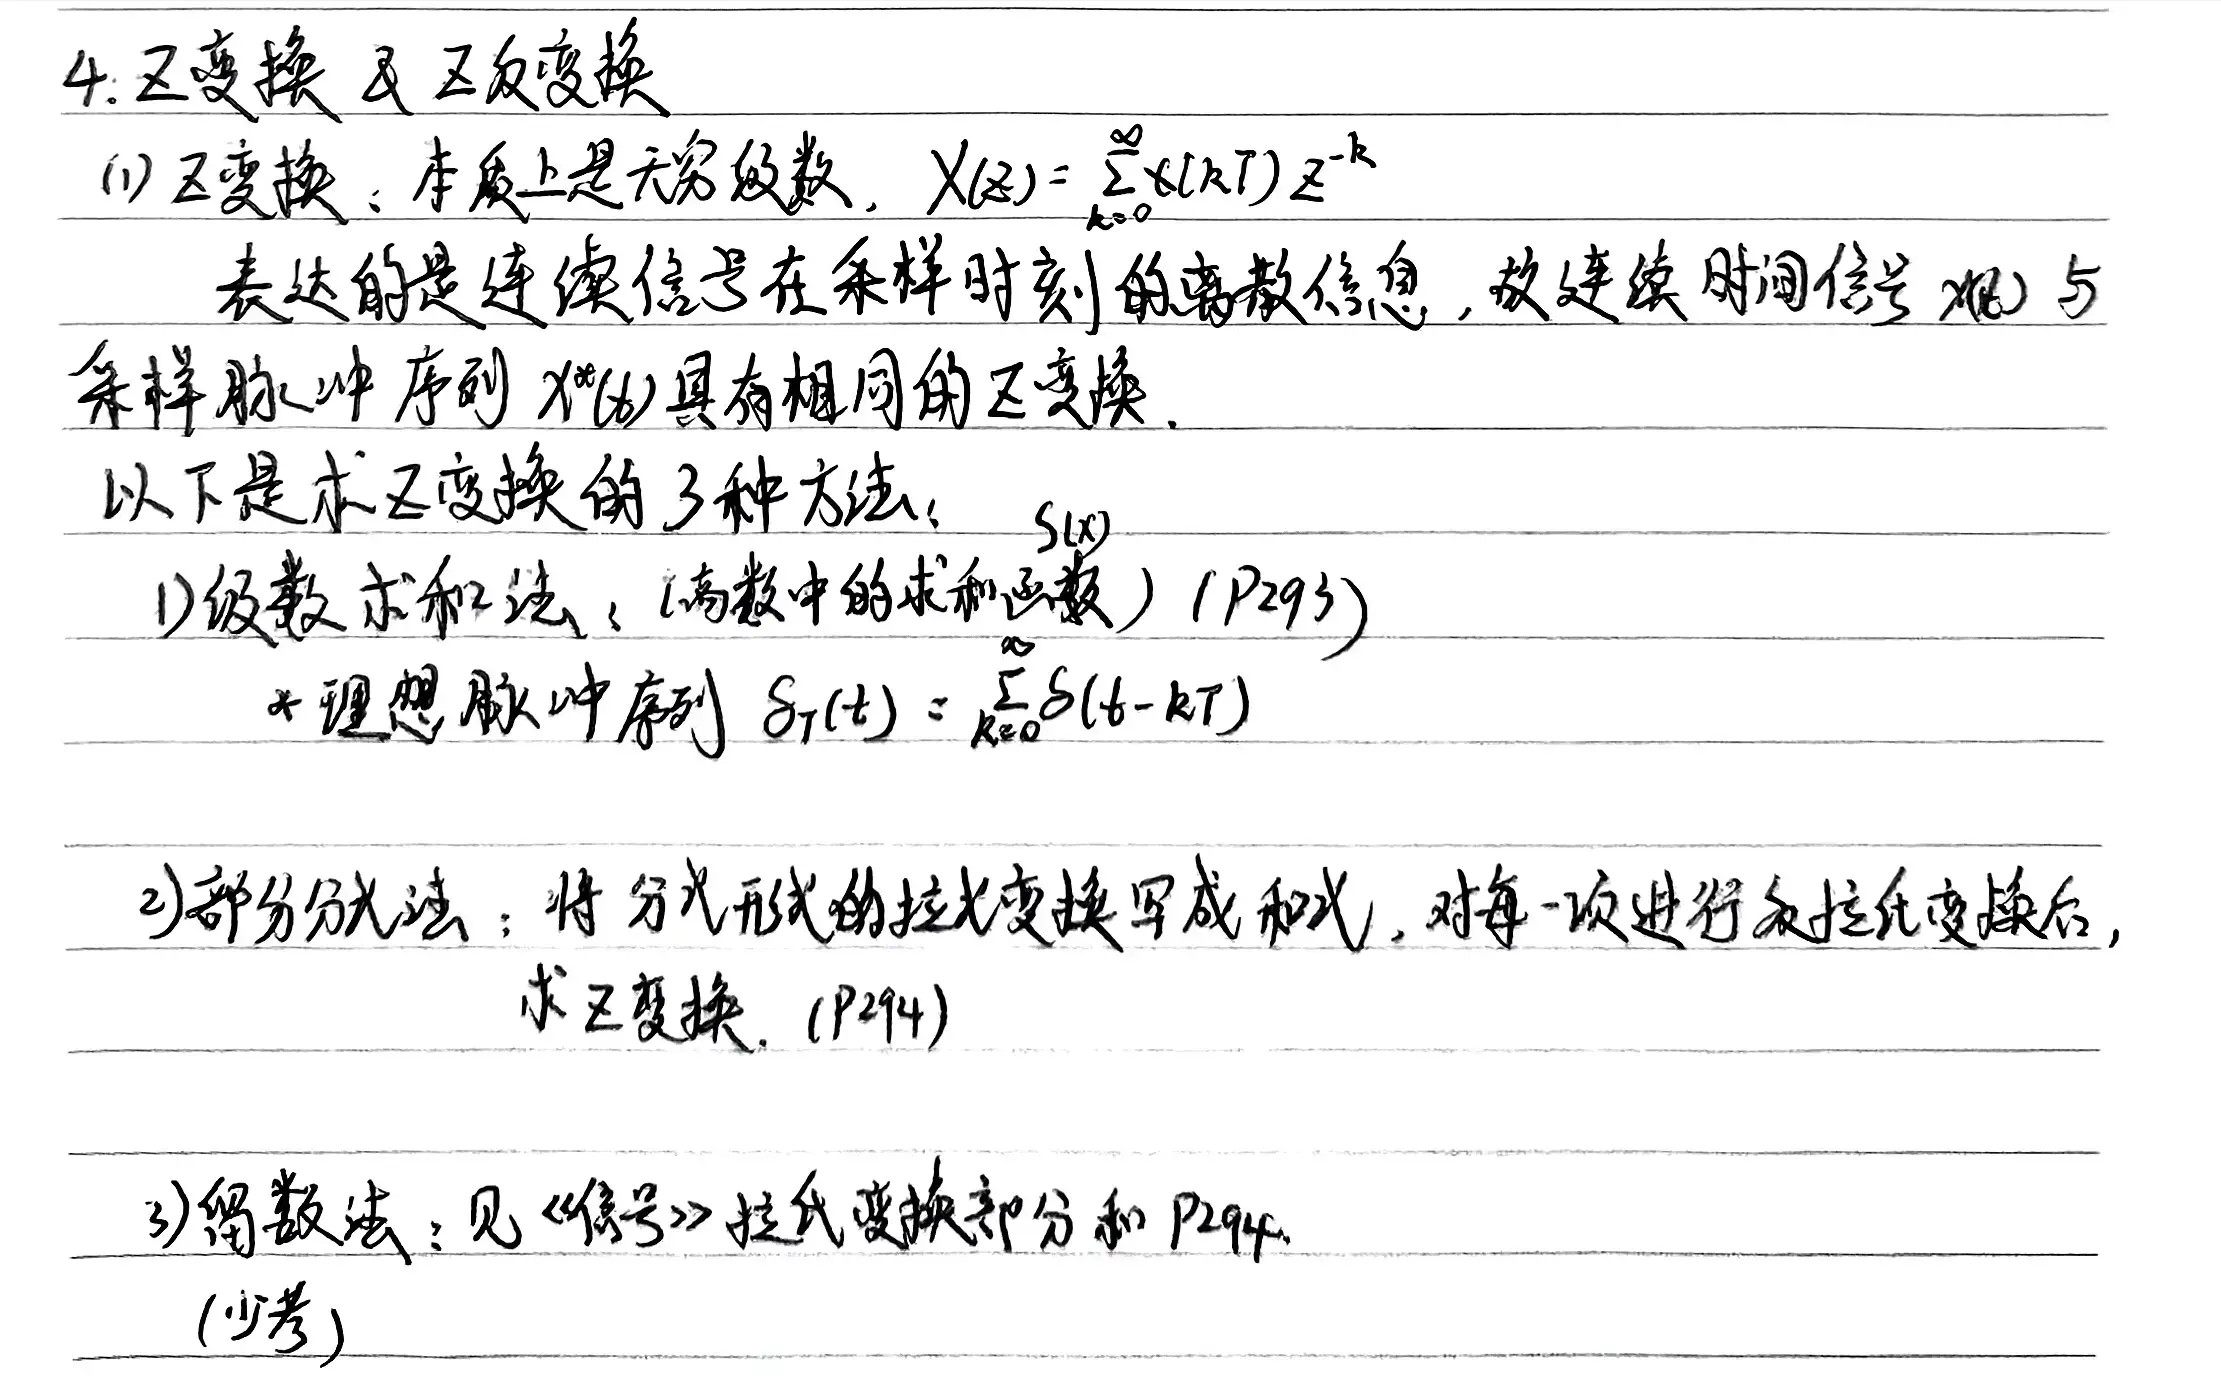 4. Z变换及Z反变换
(1) Z变换：本质上是无穷级数. X(z) = ∑_{k=0}^{∞} x(kT) z^{-k}
表达的是连续信号在采样时刻的离散信息，故连续时间信号 x(t) 与
采样脉冲序列 x*(t) 具有相同的Z变换.
以下是求Z变换的3种方法：
S(x)
1) 级数求和法：(高数中的求和函数) (P293)
*理想脉冲序列 δ_T(t) = ∑_{k=0}^{∞} δ(t-kT)
2) 部分分式法：将分式形式的拉式变换写成和式，对每一项进行反拉氏变换后，
求Z变换. (P294)
3) 留数法：见《信号》拉氏变换部分和P294.
(少考)